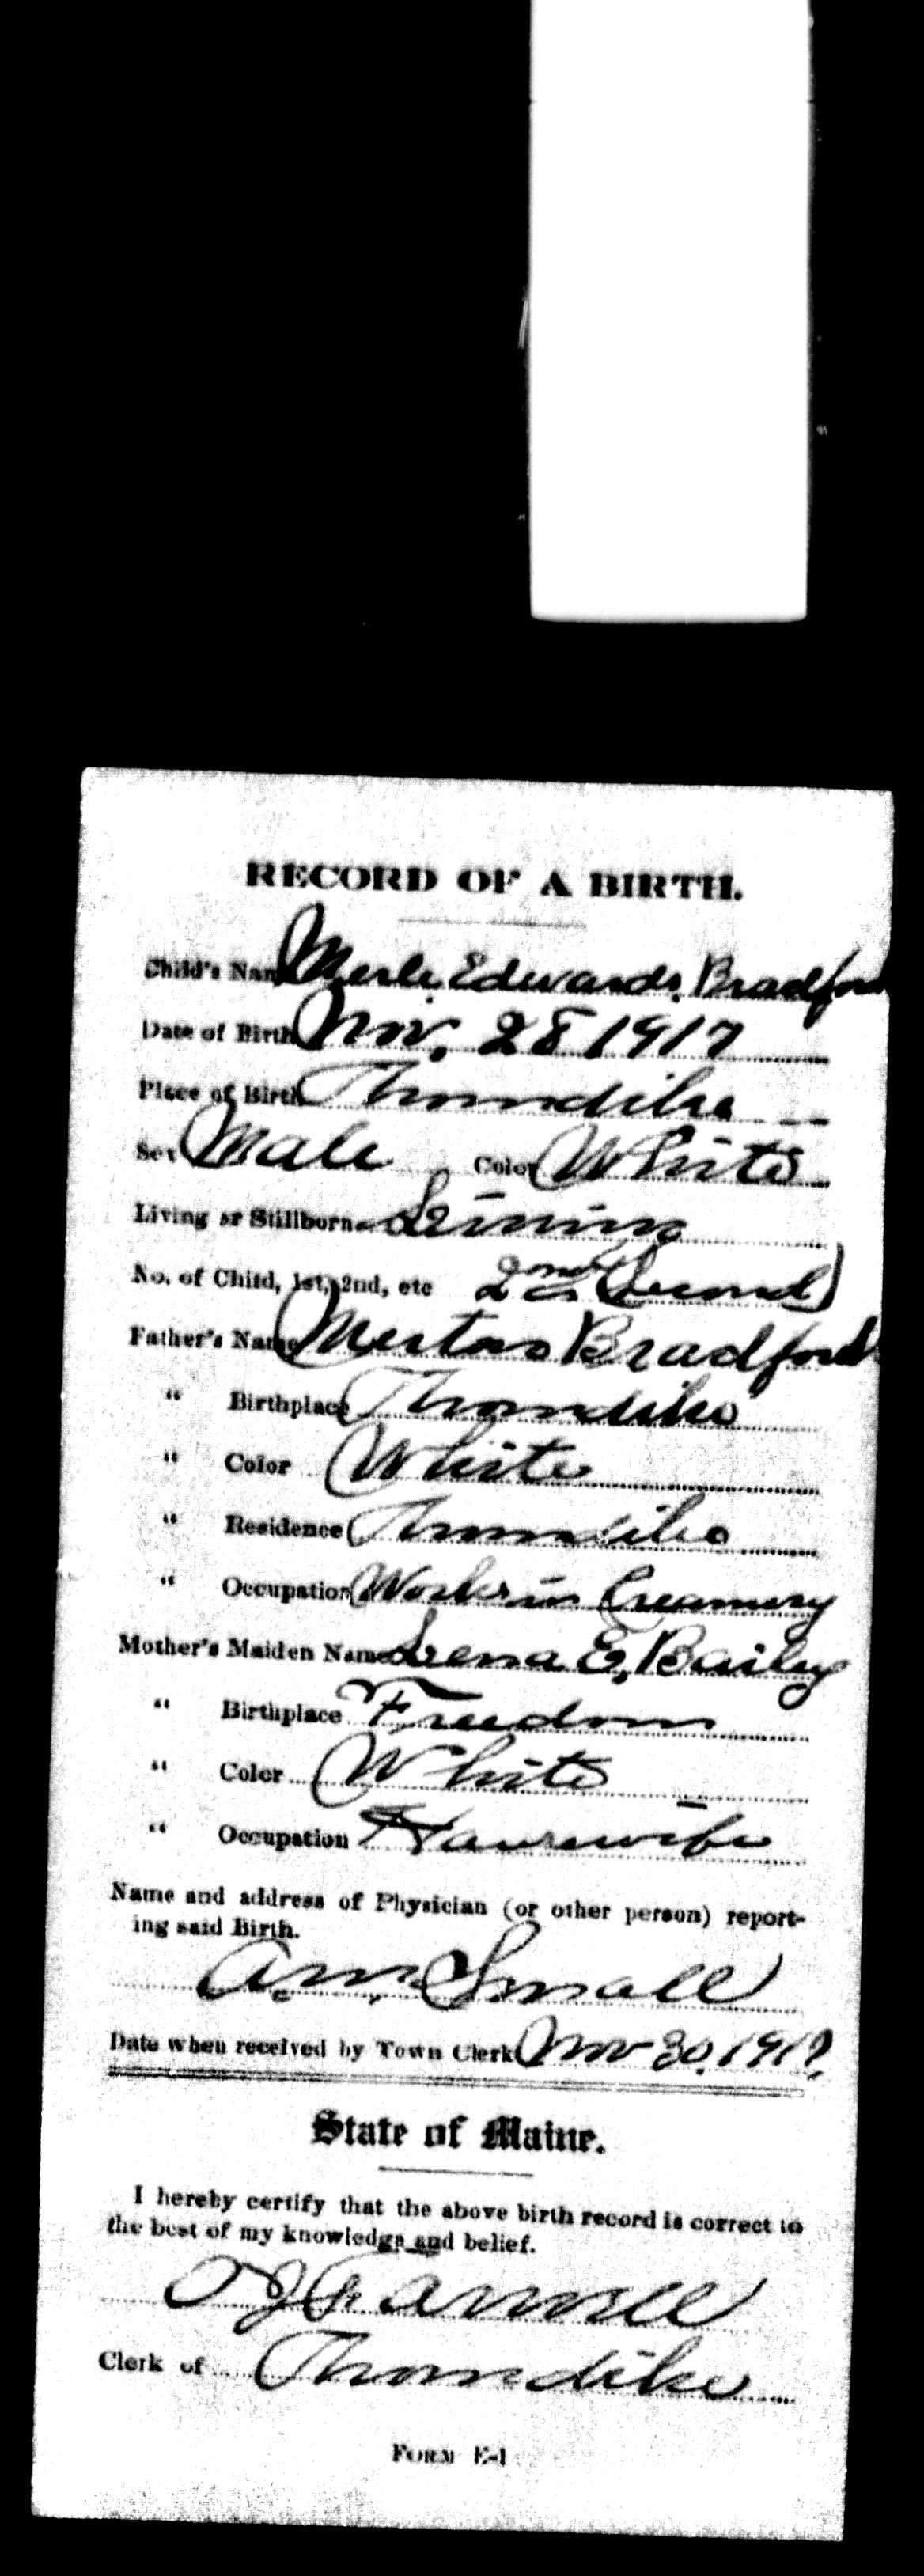 RECORD OF A BIRTH.
Child's Name Merle Edwards Bradford
Date of Birth Nov. 28 1917
Place of Birth Thorndike
Sex Male Color White
Living or Stillborn Living
No. of Child, 1st, 2nd, etc 2nd (Second)
Father's Name Bradford
" Birthplace Thorndike
" Color White
" Residence Thorndike
" Occupation Works in Creamery
Mother's Maiden Name Lena E. Baily
" Birthplace Freedom
" Color White
" Occupation Housewife
Name and address of Physician (or other person) report-
ing said Birth.
A. M. Small
Date when received by Town Clerk Nov 30, 1917
State of Maine.
I hereby certify that the above birth record is correct to
the best of my knowledge and belief.
Clerk of Thorndike
FORM E-1